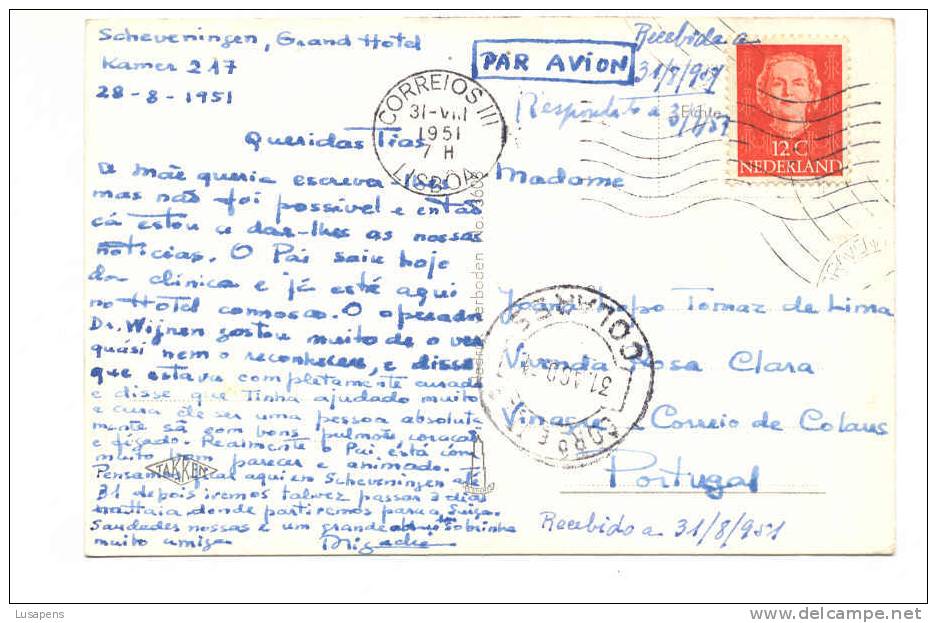 Scheveningen, Grand Hotel
Kamer 217
28-8-1951
Queridas Tias
A mãe queria escrever-lhes
mas não foi possível e então
cá estou a dar-lhes as nossas
notícias. O Pai saiu hoje
da clínica e já está aqui
no Hotel connosco. O operador
Dr. Wijnen gostou muito de o ver
quási nem o reconhecer, e disse
que estava completamente curado
e disse que tinha ajudado muito
a cura de ser uma pessoa absoluta
mente sã com bons pulmões, coração
e fígado. Realmente o Pai está com
muito bom parecer e animado.
Pensamos ficar aqui em Scheveningen até
31 depois iremos talvez passar 3 dias
Haia donde partiremos para a Suiça.
Saudades nossas e um grande da sobrinha
muito amiga
TAKKEN
CORREIOS III
31-VIII
1951
7 H
LISBOA
PAR AVION
Recebida a
31/8/951
Respondido a
Echte
12 C
NEDERLAND
Madame
Tomaz de Lima
Vivenda Rosa Clara
Vinagre Correio de Colares
Portugal
COLARES
31 AGO
Recebido a 31/8/951
Lusapens
delcampe.net